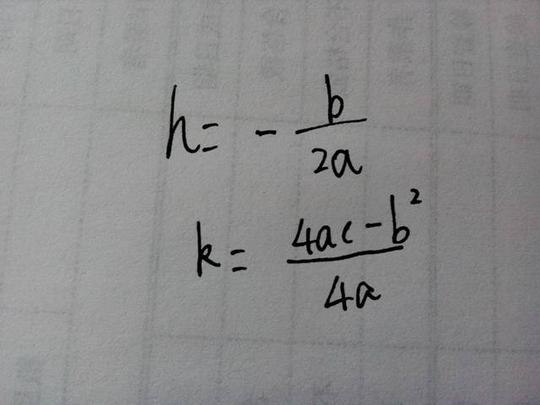 h = - b/2a
k = 4ac - b²/4a